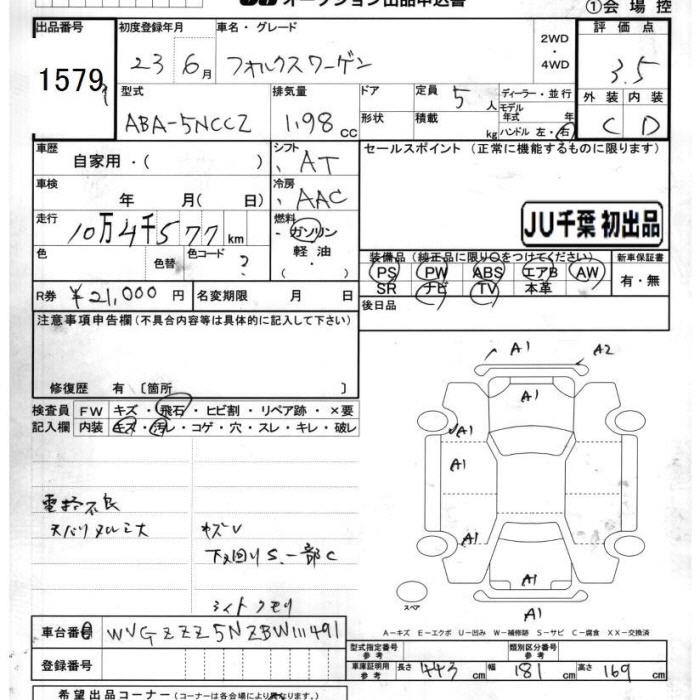 オークション出品申込書
①会場控
出品番号 初度登録年月 車名・グレード 2WD・4WD 評価点
1579 23 6月 フォルクスワーゲン 3.5
型式 排気量 ドア 定員 5人 ディーラー・並行 外装 内装
ABA-5NCCZ 1.98 cc 形状 積載 kg モデル年式 年 ハンドル 左・右 C D
車歴 自家用・( ) シフト AT セールスポイント (正常に機能するものに限ります)
車検 年 月( 日) 冷房 AAC
JU千葉 初出品
走行 10万4千577 km 燃料 ・ガソリン
軽油
・( )
色 色替 色コード ?
装備品 (純正品に限り○をつけてください) 新車保証書
PS PW ABS エアB AW 有・無
SR ナビ TV 本革
R券 ¥21,000 円 名変期限 月 日 後日品
注意事項申告欄 (不具合内容等は具体的に記入して下さい)
修復歴 有 [箇所 ]
A1 A2
検査員 FW キズ・飛石・ヒビ割・リペア跡・×要
記入欄 内装 キズ・汚レ・コゲ・穴・スレ・キレ・破レ
A1
A1
A1
A1
キズV
下回りS.一部C
A1
A1
スペア
A-キズ E-エクボ U-凹み W-補修跡 S-サビ C-腐食 XX-交換済
車台番号 WVGZZZ5NZBW111491
型式指定番号 参考 類別区分番号 参考
登録番号
車庫証明用 参考 長さ 443 cm 幅 181 cm 高さ 169 cm
希望出品コーナー (コーナーは各会場により異なります)